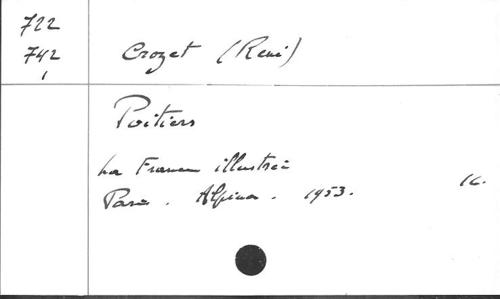 722
742
1
Crozet (René)
Poitiers
La France illustrée
Paris. Alpina. 1953. 16.